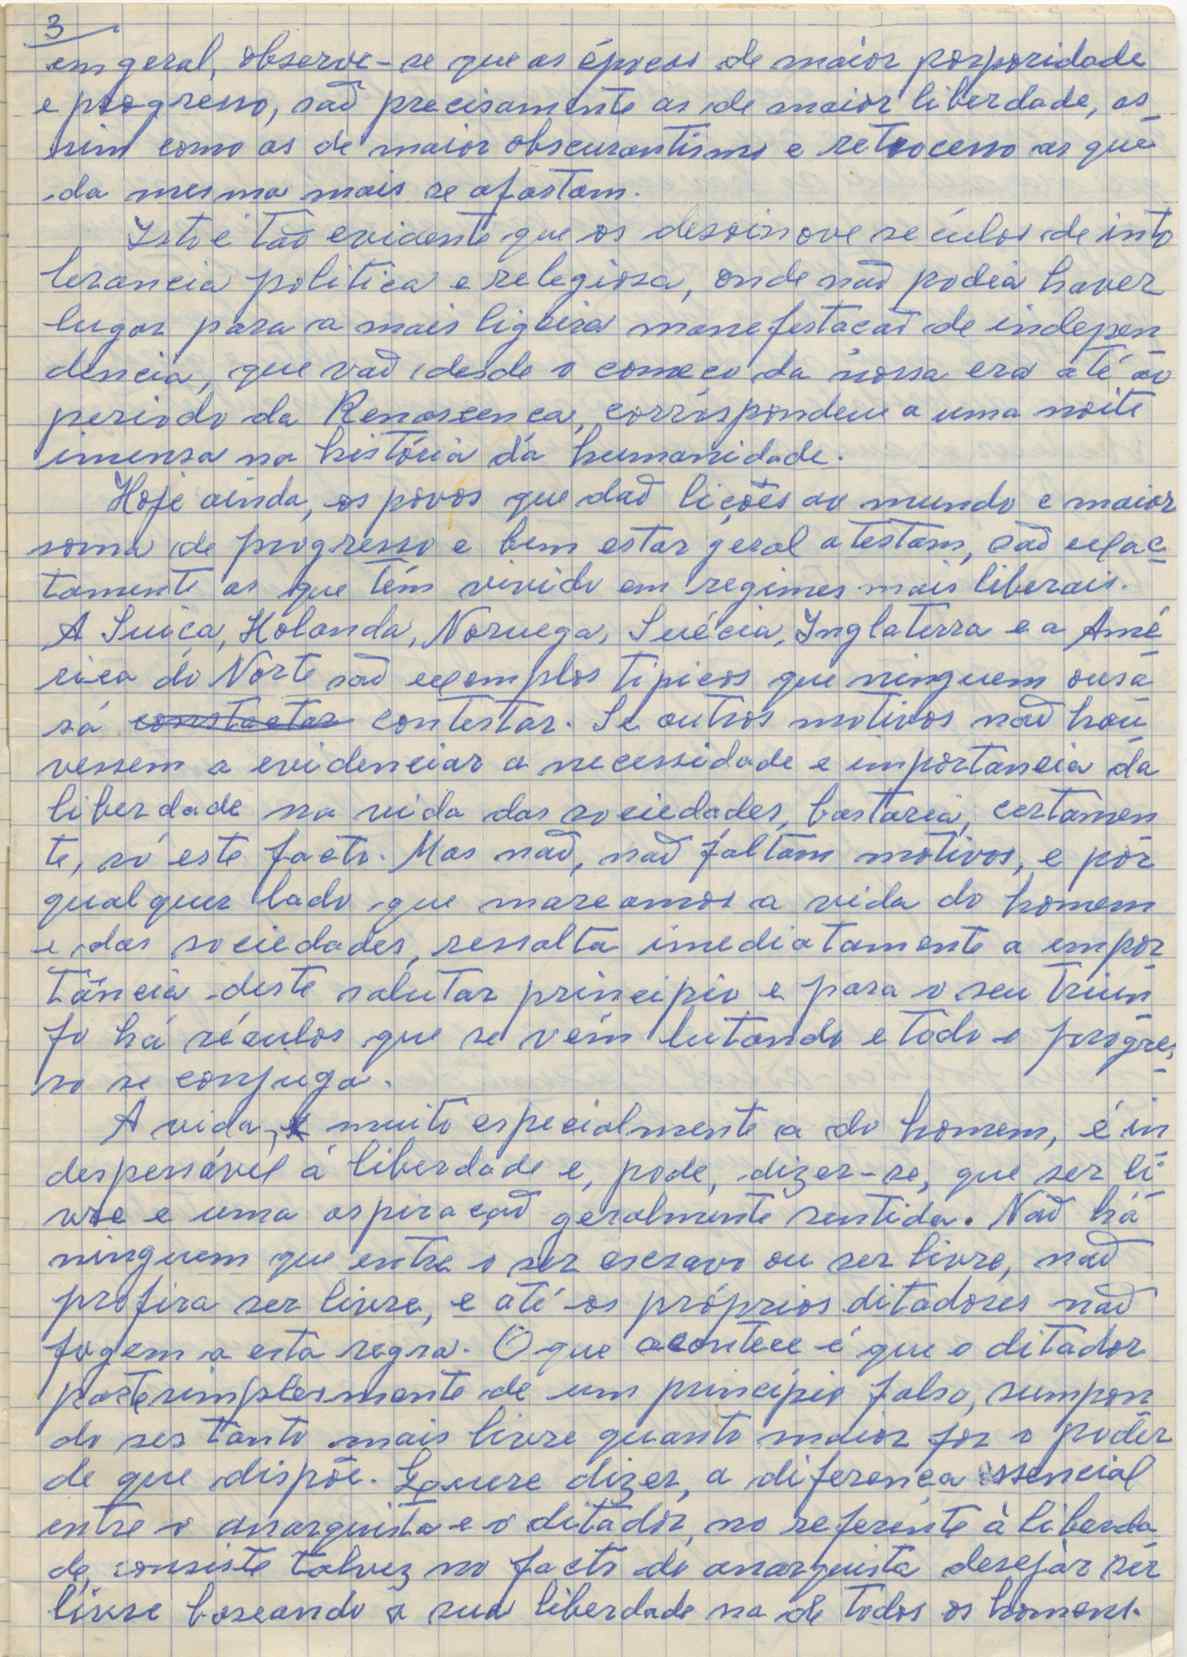 3
em geral, observe-se que as épocas de maior porporidade
e progresso, saõ precisamente as de maior liberdade, as
sim como as de maior obscurantismo e retrocesso as que
da mesma mais se afastam.
Isto é taõ evidente que os desoinove séculos de into
lerancia politica e relegiosa, onde naõ podia haver
lugar para a mais ligeira manefestacaõ de indepen
dencia, que vaõ desde o comeco da nossa era até ao
periodo da Renascenca, corrospondem a uma noite
imensa na história da humanidade.
Hoje ainda, os povos que daõ lições ao mundo e maior
soma de progresso e bem estar geral atestam, saõ exac
tamente os que têm vivido em regimes mais liberais.
A Suiça, Holanda, Noruega, Suécia, Inglaterra e a Amé
rica do Norte saõ exemplos tipicos que ninguem ousa
rá constactar contestar. Se outros motivos naõ hou
vessem a evidenciar a necessidade e importancia da
liberdade na vida das sociedades, bastaria, certamen
te, só este facto. Mas naõ, naõ faltam motivos, e por
qualquer lado que marcamos a vida do homem
e das sociedades, ressalta imediatamente a empor
tância deste salutar principio e para o seu triun
fo há séculos que se vêm lutando e todo o progre
so se conjuga.
A vida, e muito especialmente a do homem, é in
despensável á liberdade e, pode, dizer-se, que ser li
vre e uma aspiraçaõ geralmente sentida. Naõ há
ninguem que entre o ser escravo ou ser livre, naõ
profira ser livre, e até os próprios ditadores naõ
fogem a esta regra. O que acontece é que o ditador
parte simplesmente de um principio falso, sumpon
do ser tanto mais livre quanto maior for o poder
de que dispõe. Quere dizer, a diferença essencial
entre o anarquista e o ditador, no referente à liberda
de, consiste talvez no facto do anarquista desejar ser
livre baseando a sua liberdade na de todos os homens.